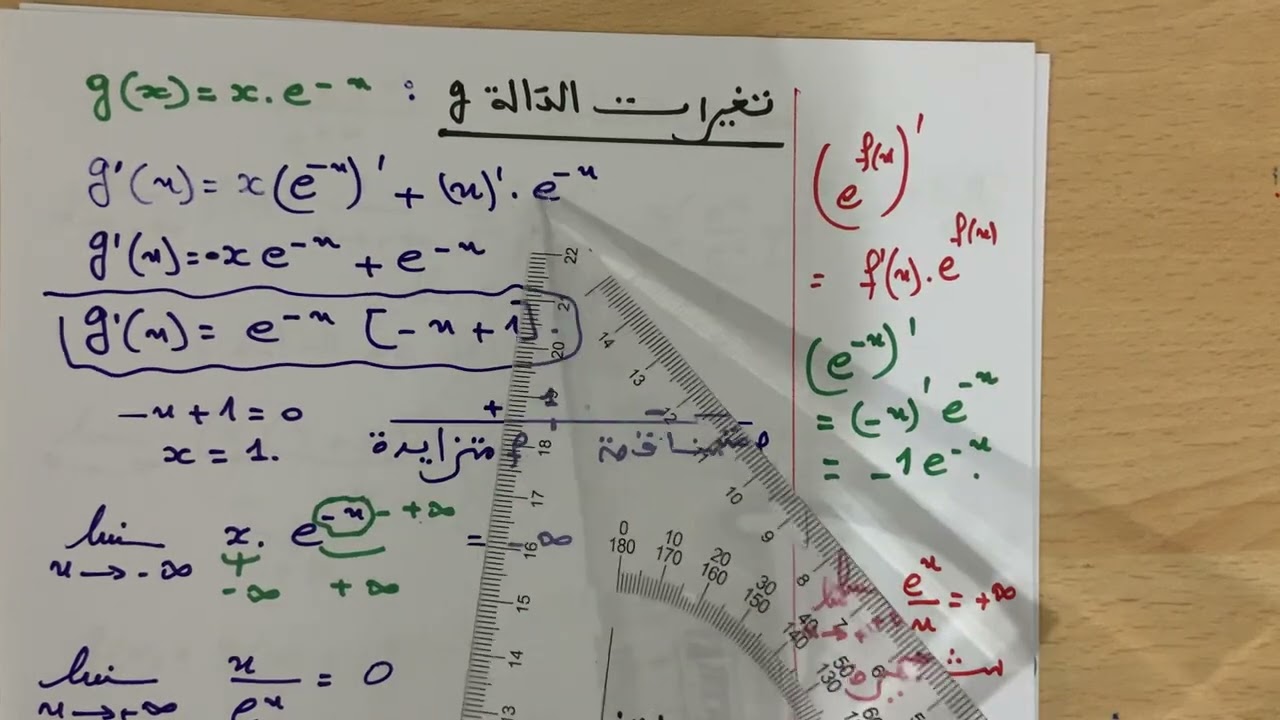 g(x) = x.e^{-x} : تغيرات الدالة g
g'(x) = x(e^{-x})' + (x)'.e^{-x}
g'(x) = -x e^{-x} + e^{-x}
g'(x) = e^{-x} [-x + 1].
-x + 1 = 0
x = 1.
+ -
متزايدة متناقصة
lim x→-∞ x. e^{-x} = -∞
-x → +∞
-∞ +∞
lim x→+∞ x/e^x = 0
(e^{f(x)})'
= f'(x).e^{f(x)}
(e^{-x})'
= (-x)' e^{-x}
= -1 e^{-x}.
lim e^x/x = +∞
22
21
20
19
18
17
16
15
14
13
14
13
12
11
10
9
8
7
6
0 10 20 30 40 50
180 170 160 150 140 130